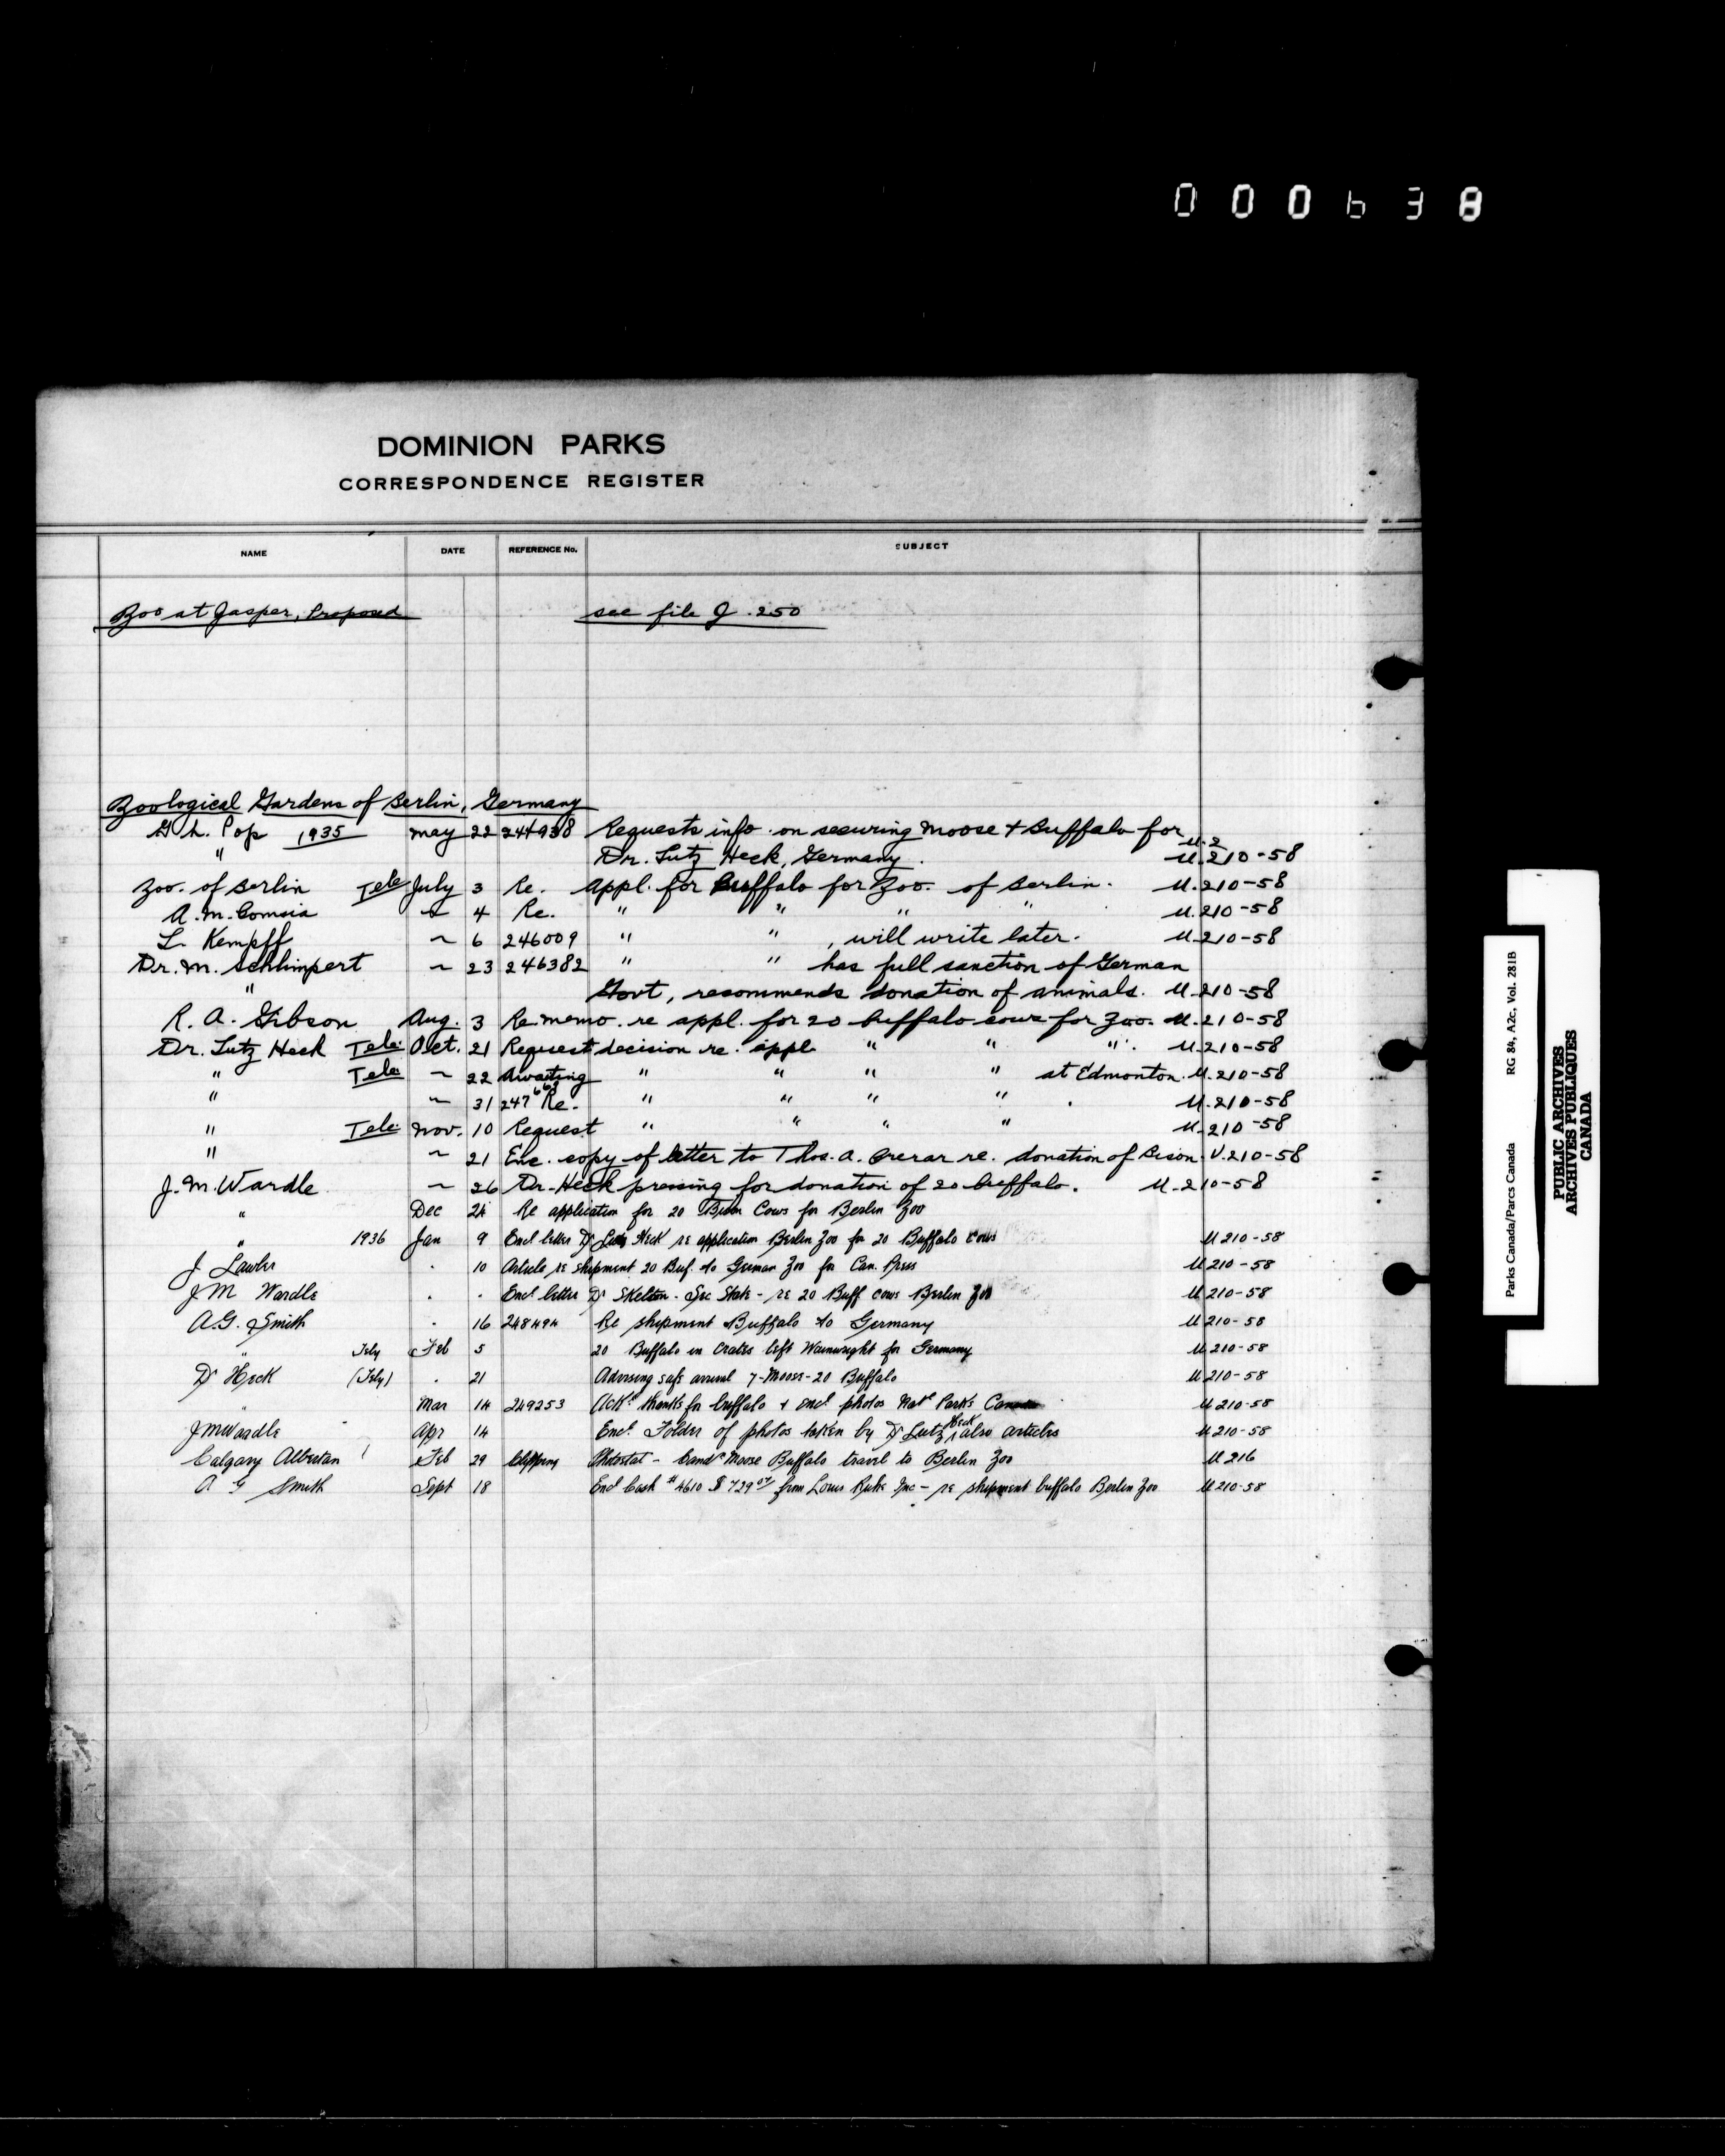 000638
DOMINION PARKS
CORRESPONDENCE REGISTER
NAME DATE REFERENCE No. SUBJECT
Zoo at Jasper, Proposed see file J.250
Zoological Gardens of Berlin, Germany
G. L. Pop 1935 May 22 244938 Requests info. on securing Moose & Buffalo for U.2
" Dr. Lutz Heck, Germany. U.210-58
Zoo. of Berlin Tele July 3 Re. appl. for Buffalo for Zoo. of Berlin. U.210-58
A. M. ~ 4 Re. " " " " U.210-58
L. Kempff ~ 6 246009 " " , will write later. U.210-58
Dr. M. Schlimpert ~ 23 246382 " " has full sanction of German
" Govt, recommends donation of animals. U.210-58
R. A. Gibson Aug. 3 Re memo. re appl. for 20 buffalo cows for Zoo. U.210-58
Dr. Lutz Heck Tele. Oct. 21 Request decision re. appl. " " " . U.210-58
" Tele. ~ 22 Awaiting " " " " at Edmonton. U.210-58
" ~ 31 247 Re. " " " " . U.210-58
" Tele. Nov. 10 Request " " " " U.210-58
" ~ 21 Enc. copy of letter to Thos. A. Crerar re. donation of Bison. U.210-58
J. M. Wardle ~ 26 Dr. Heck pressing for donation of 20 buffalo. U.210-58
" Dec 24 Re application for 20 Cows for Berlin Zoo
" 1936 Jan 9 Encl letter Dr Lutz Heck re application Berlin Zoo for 20 Buffalo cows U 210-58
J Lawler . 10 Article re shipment 20 Buf. to German Zoo for Can. Press U 210-58
J M Wardle . . Encl letter Dr Skelton - Sec State - re 20 Buff cows Berlin Zoo U 210-58
A.G. Smith . 16 248494 Re shipment Buffalo to Germany U 210-58
" Tely Feb 5 20 Buffalo in Crates left Wainwright for Germany U 210-58
Dr Heck (Tely) . 21 Advising safe arrival 7-Moose-20 Buffalo U 210-58
" Mar 14 249253 Ack thanks for buffalo & encl photos Natl Parks Canada U 210-58
J M Wardle Apr 14 Encl Folder of photos taken by Dr Lutz Heck, also articles U 210-58
Calgary Albertan Feb 29 Clipping Photostat - Moose Buffalo travel to Berlin Zoo U 216
A G Smith Sept 18 Encl Cash # 4610 $ 729 from Louis Ruhe Inc - re shipment buffalo Berlin Zoo U 210-58
Parks Canada/Parcs Canada RG 84, A2c, Vol. 281B
PUBLIC ARCHIVES
ARCHIVES PUBLIQUES
CANADA